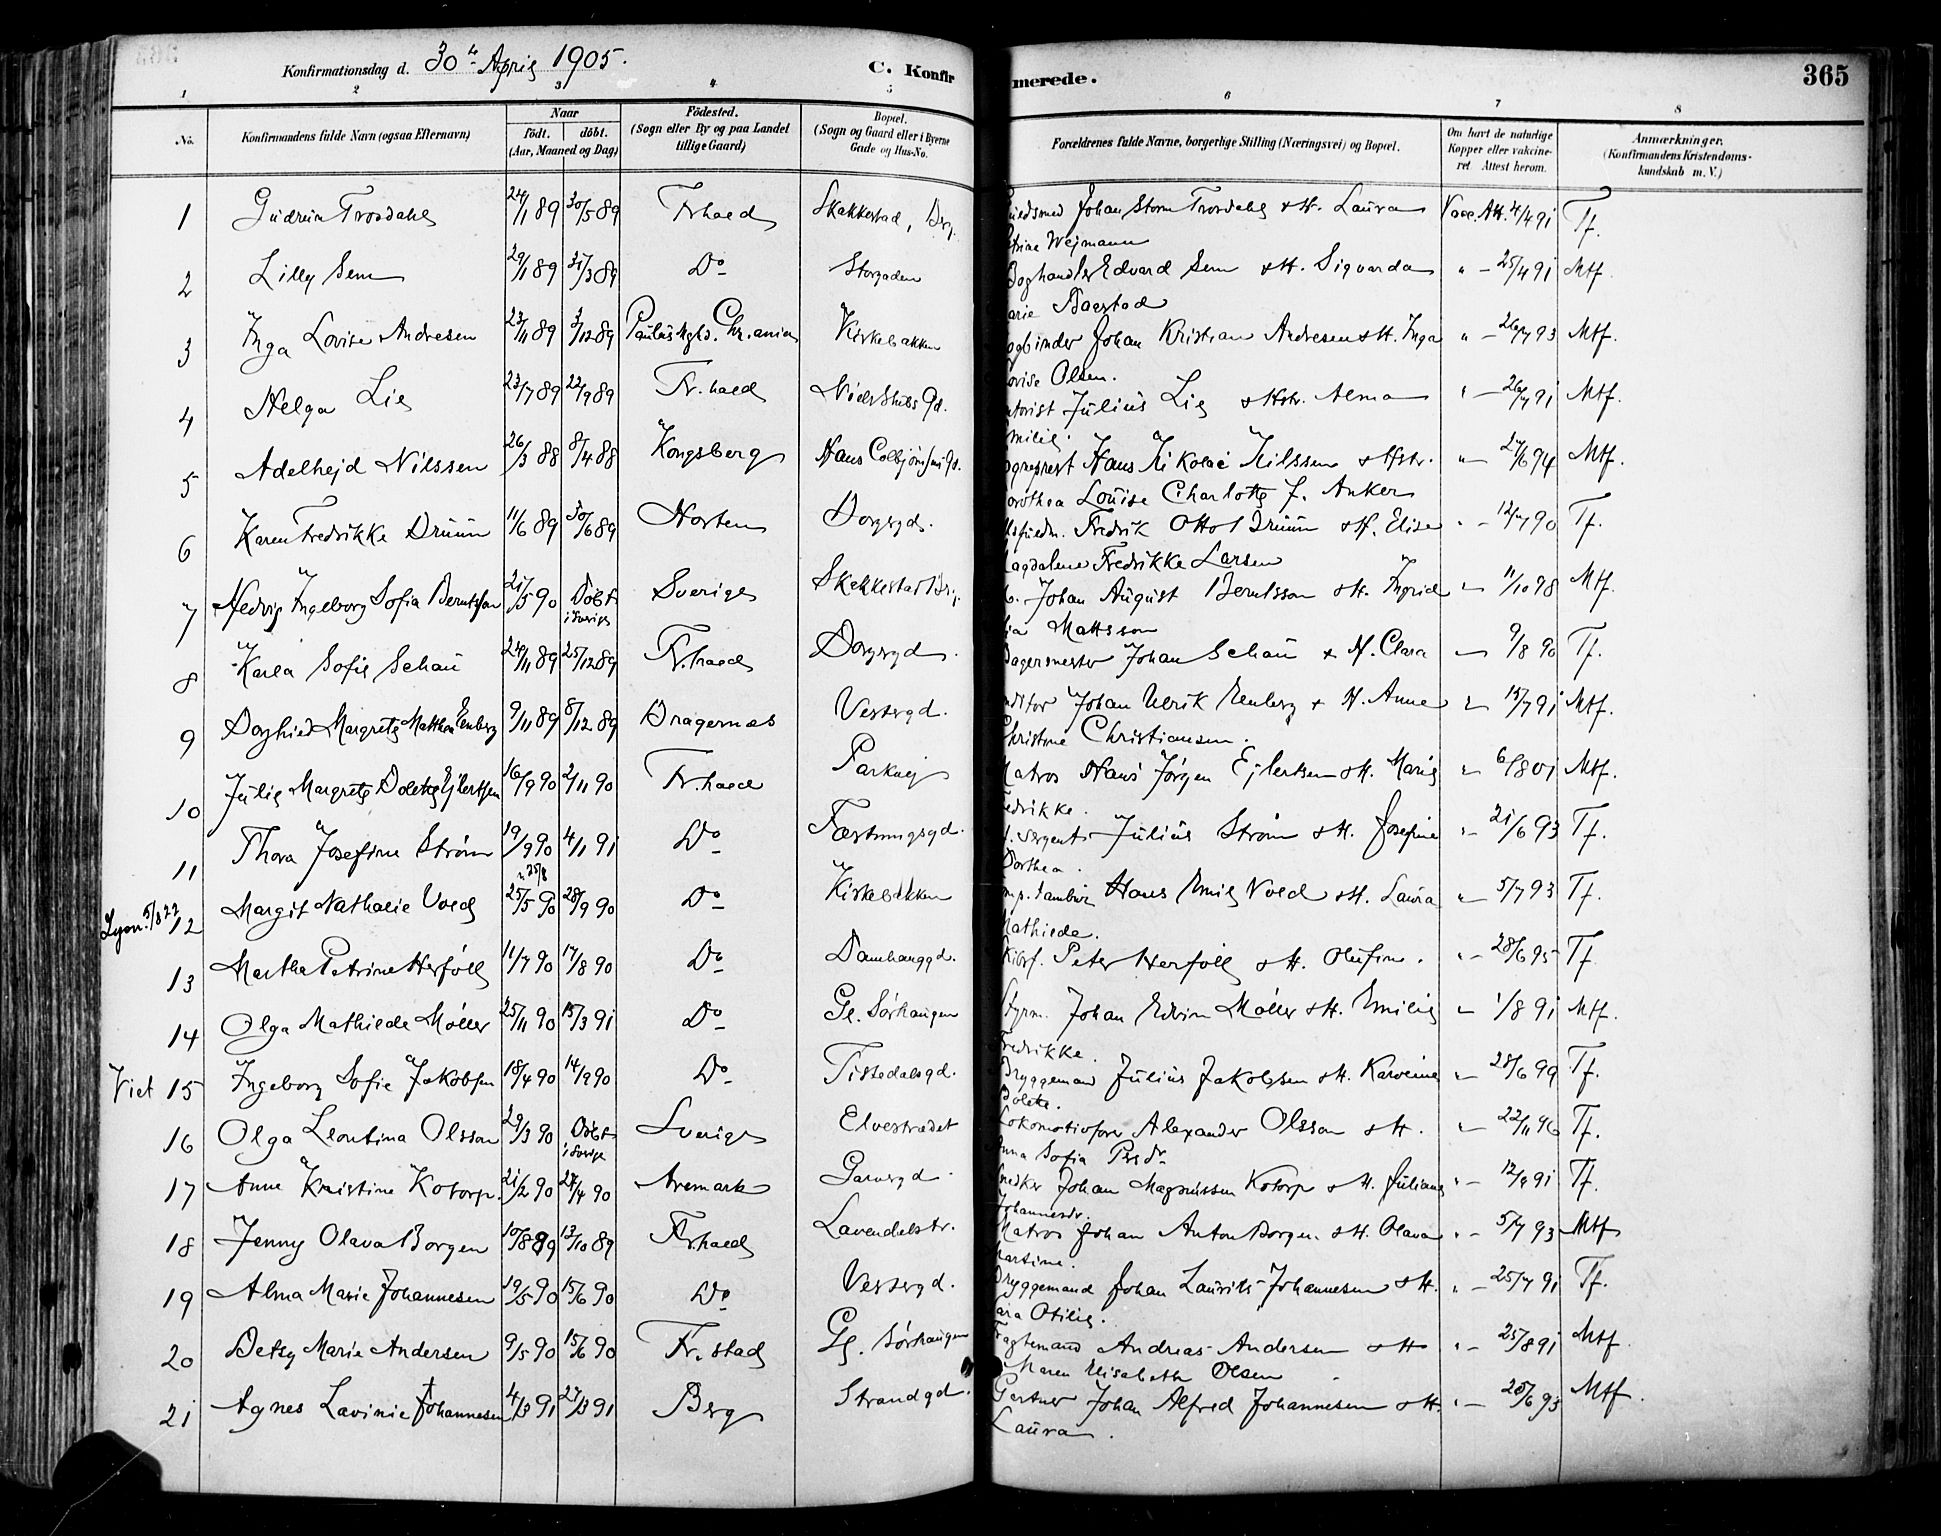 Konfirmationsdag d. 30te April 1905.
C. Konfir
merede.
365
1 2 3 4 5 6 7 8
No.
Konfirmandens fulde Navn (ogsaa Efternavn)
Naar
födt. döbt.
(Aar, Maaned og Dag)
Födested.
(Sogn eller By og paa Landet
tillige Gaard)
Bopæl.
(Sogn og Gaard eller i Byerne
Gade og Hus-No.
Forældrenes fulde Navne, borgerlige Stilling (Næringsvei) og Bopæl.
Om havt de naturlige
Kopper eller vakcine-
ret Attest herom.
Anmærkninger.
(Konfirmandens Kristendoms-
kundskab m. V.)
1 Gudrun Trosdahl 24/1 89 30/5 89 Fr.hald Skakkestad, Brg. Johan Storm Trosdahl & H. Laura Vacc. Att. 4/4 91 Tf.
Wejmann
2 Lilly Sem 29/1 89 31/3 89 Do Storgaden Boghandler Edvard Sem & H. Sigvarda " - 25/4 91 Mtf.
Baastad
3 Inga Lovise Andresen 23/11 89 3/12 89 Paulus Kristiania Kirkebakken ogbinder Johan Kristian Andresen & H. Inga " - 26/7 93 Mtf.
ovise Olsen.
4 Helga Lie 23/7 89 22/9 89 Fr.hald Julius Lie & Hstr. Alma " - 91 Mtf.
milie.
5 Adelhejd Nilssen 26/3 88 8/4 88 Kongsberg Hans Colbjörnsens Gd. Hans Nikolai Nilssen & Hstr. " - 27/6 94 Mtf.
orothea Louise Charlotte f. Anker
6 Karen Fredrikke Druun 11/6 89 30/6 89 Horten Borgergd. Fredrik Otto Druun & H. Elise " - 90 Tf.
agdalene Fredrikke Larsen
7 Hedvig Ingeborg Sofia Berntsson 21/5 90 Döbt i Sverige Sverige Skakkestad Brg. Johan August Berntsson & H. Ingrid " - 11/10 98 Mtf.
Mattsson
8 Karla Sofie Schau 24/11 89 25/12 89 Fr.hald Borgergd. Bagermester Johan Schau & H. Clara " - 9/8 90 Tf.
9 Borghild Margrete Mathea Enberg 9/11 89 8/12 89 Bragernæs Vestergd. nditor Johan Ulrik Enberg & H. Anne " - 15/7 91 Mtf.
Christine Christiansen.
10 Julie Margrete Dolette Ejlertsen 16/9 90 2/11 90 Fr.hald Parkvej Matros Hans Jörgen Ejlertsen & H. Marie " - 6/8 01 Mtf.
edrikke.
11 Thora Josefine Ström 19/9 90 4/1 91 Do Fæstningsgd. Sergent Julius Ström & H. Josefine " - 21/6 93 Tf.
Dorthea.
Lysn. 5/8 22 12 Margit Nathalie Vold 25/5 90 28/9 90 Do Kirkebakken Hans Emil Vold & H. Laura " - 5/7 93 Tf.
Mathilde.
13 Martha Petrine Herföll 11/7 90 17/8 90 Do Damhauggd. Skibsf. Peter Herföll & H. Olufine. " - 28/6 95 Tf
14 Olga Mathilde Möller 25/11 90 15/3 91 Do Gl. Sörhaugen Styrm. Johan Edvin Möller & H. Emilie " - 1/8 91 Mtf.
Fredrikke.
Viet 15 Ingeborg Sofie Jakobsen 18/4 90 14/9 90 Do Tistedalsgd. Bryggemand Julius Jakobsen & H. Karoline " - 28/6 99 Tf.
Bolette.
16 Olga Leontina Olsson 29/3 90 Döbt i Sverige Sverige Elvestrædet Lokomotivförer Alexander Olsson & H. " - 22/11 96 Tf.
Anna Sofia Prsdr
17 Anne Kristine Kotorp. 21/2 90 27/4 90 Aremark Garvergd. nedker Johan Magnussen Kotorp & H. Juliane " - 12/9 91 Tf.
Johannesdr.
18 Jenny Olava Borgen 10/8 89 13/10 89 Fr.hald Lavendelstr. Matros Johan Anton Borgen & H. Olava " - 5/7 93 Mtf
Martine.
19 Alma Marie Johannesen 19/5 90 15/6 90 Do Vestergd. Bryggemand Johan Laurits Johannesen & H. " - 25/7 91 Tf.
Otilie.
20 Betsy Marie Andersen 9/5 90 15/6 90 Fr.stad Gl. Sörhaugen Fragtemand Andreas Andersen & H " - 25/8 91 Mtf.
Maren Elisabeth Olsen
21 Agnes Lavinie Johannesen 4/3 91 27/3 91 Berg Strandgd. Gartner Johan Alfred Johannesen & H. " - 25/6 93 Mtf.
Laura.